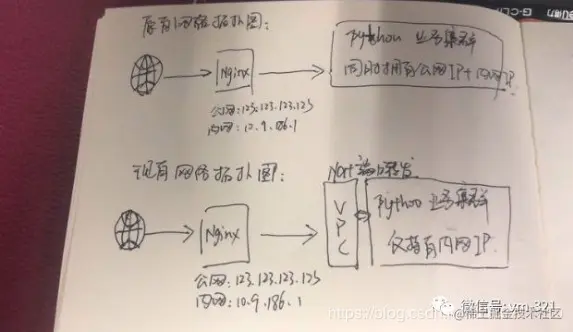 原有网络拓扑图：
Nginx
公网：123.123.123.123
内网：10.9.186.1
Python 业务集群
同时拥有公网IP+内网IP
现有网络拓扑图：
Nat 端口转发
Nginx
VPC
Python 业务集群
仅拥有内网IP
公网：123.123.123.123
内网：10.9.186.1
G-CL
https://blog.csdn
微信号: vm-321
@稀土掘金技术社区